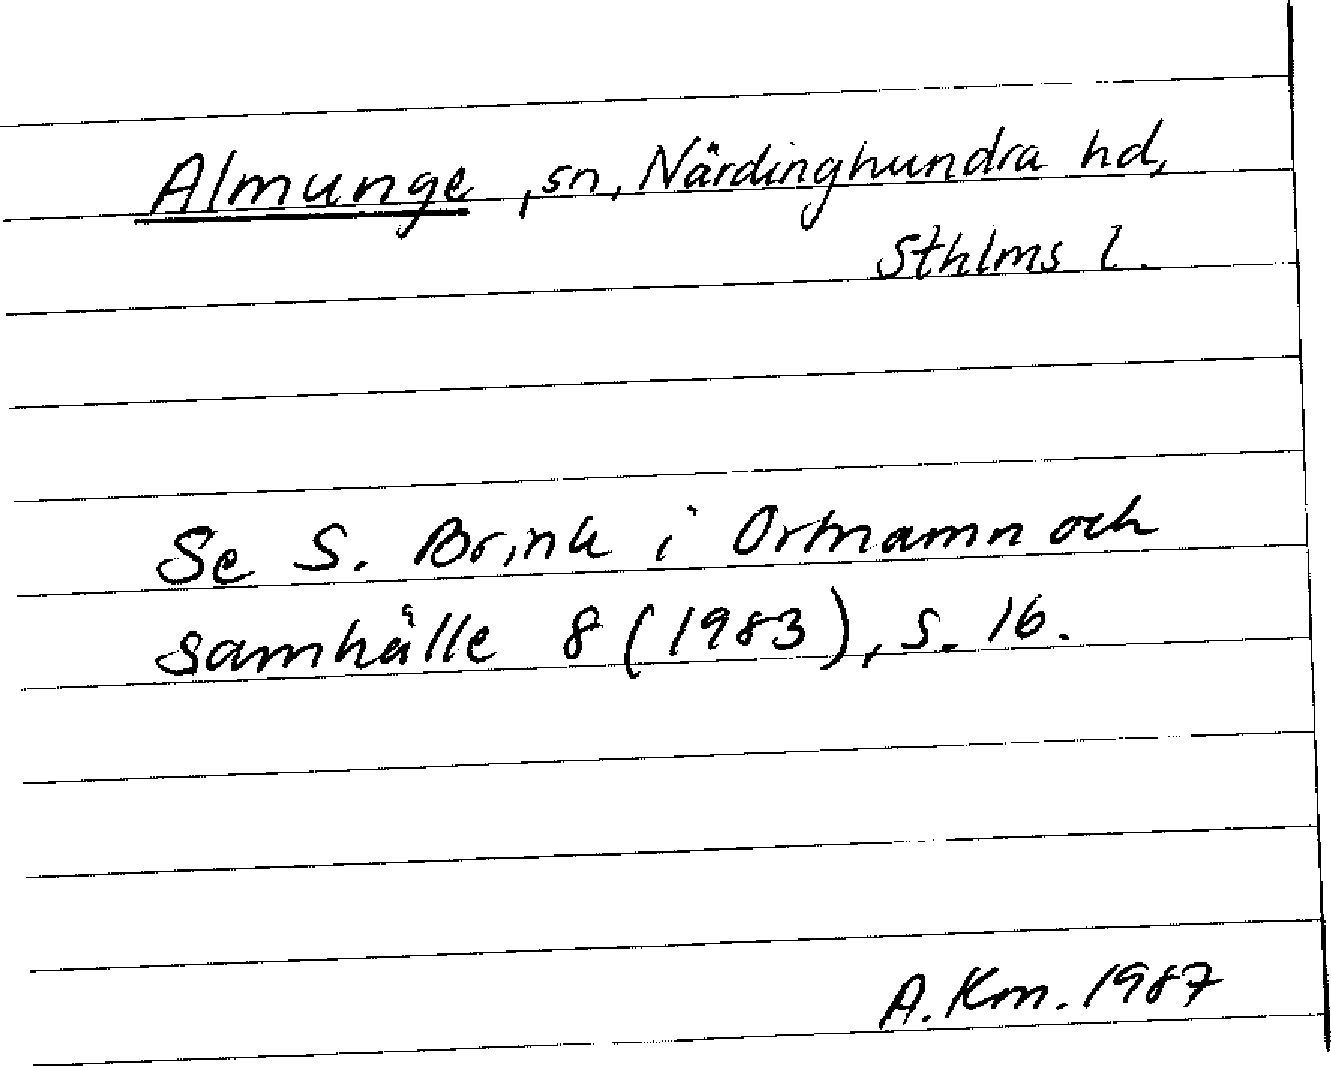 Almunge, sn, Närdinghundra hd,
Sthlms l.
Se S. Brink i Ortnamn och
samhälle 8 (1983), s. 16.
A. Km. 1987